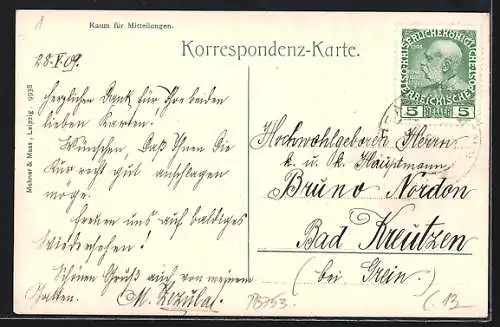 Raum für Mitteilungen.
Korrespondenz-Karte.
28.V.09.
Herzlichen Dank für Ihre beiden
lieben Karten.
Wünschen, daß Ihnen die
Kur recht gut anschlagen
möge.
Freuen uns auf baldiges
Wiedersehen!
Schönen Gruß auch von meinem
Gatten.
Mahner & Maas, Leipzig 9938
KAISERLICHEKÖNIGLICHE
ÖSTERREICHISCHE
5 HELLER 5
Hochwohlgeboren Herrn
k. u. k. Hauptmann
Bruno Nordon
Bad Kreutzen
(bei Grein.)